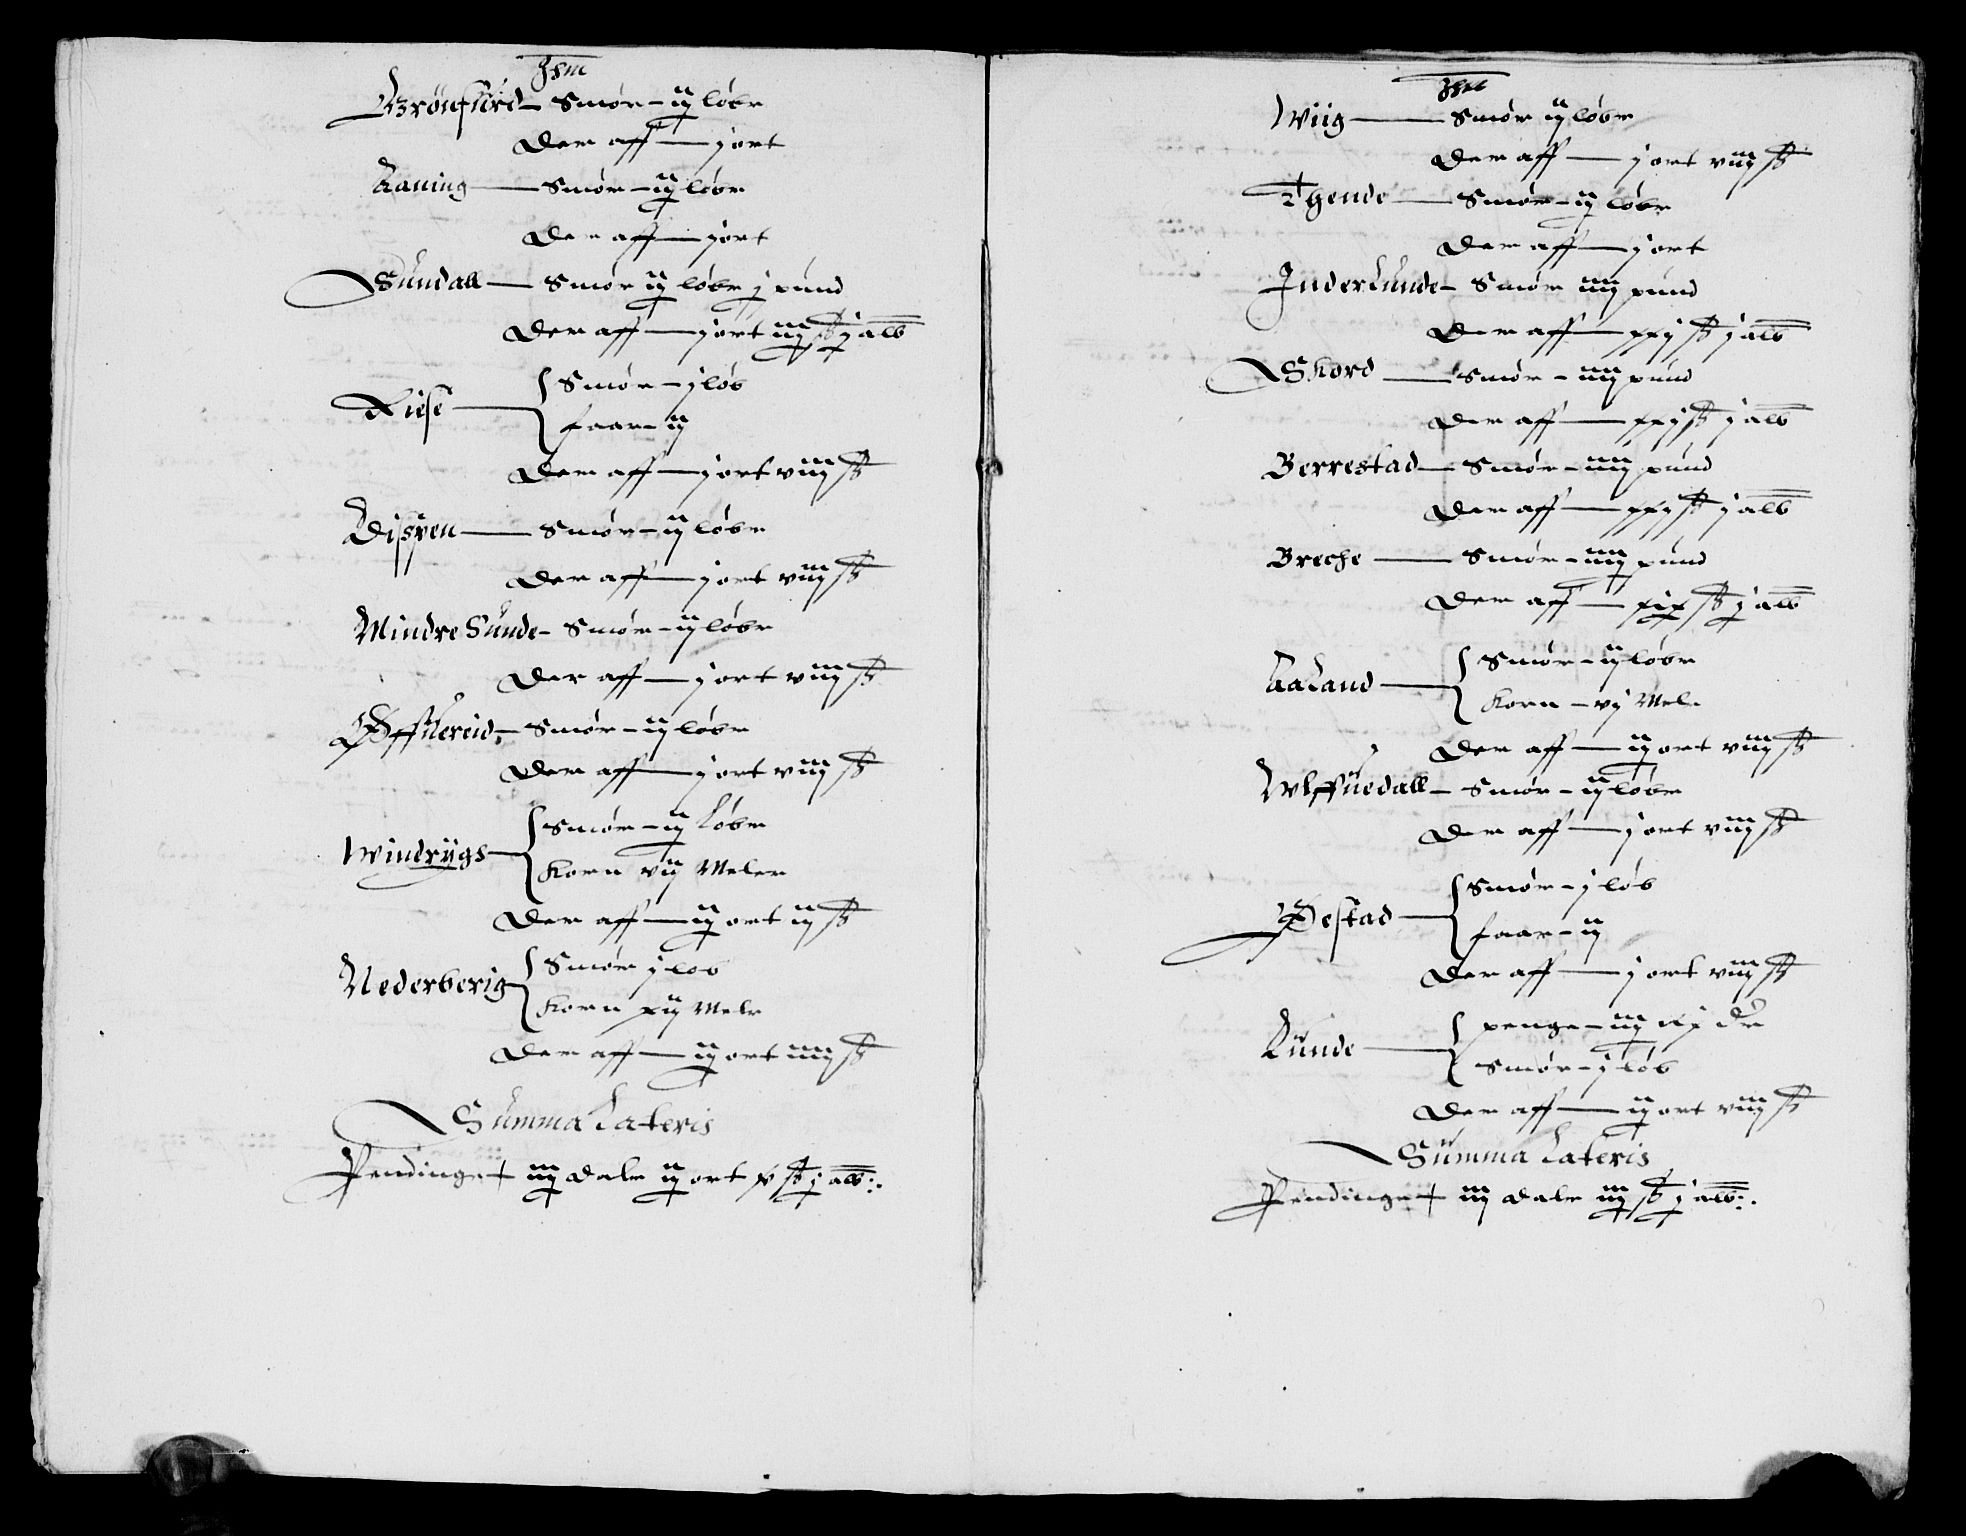 Ihm
Brönsurd – Smör – ij löbe
Der aff — j ort
Aaning — Smör – ij löbe
Der aff — j ort
Sundall — Smör ij löbe j pund
Der aff — j ort iij ß j alb
Riese — Smör – j löb
faar – ij
Der aff — j ort viij ß
Disßen — Smör – ij löbe
Der aff — j ort viij ß
Mindre Sunde – Smör – ij löbe
Der aff — j ort viij ß
Øffuereid – Smör – ij löbe
Der aff — j ort viij ß
Windrÿgs – Smör – ij Löbe
Korn vij Meler
Der aff — ij ort ij ß
Nederberig Smör j löb
Korn xij Mele
Der aff — ij ort iiij ß
Summa Lateris
Pendinge iij dale ij ort x ß j alb
Ihm
Wiig — Smör ij löbe
Der aff — j ort viij ß
Thende — Smör – ij löbe
Der aff — j ort
InderLunde – Smör iiij pund
Der aff — xxj ß j alb
Skord — Smör – iiij pund
Der aff — xxj ß j alb
Berrestad – Smör – iiij pund
Der aff — xxj ß j alb
Breche — Smör – iiij pund
Der aff — xix ß j alb
AaLand — Smör – ij löbe
Korn – vj Mele
Der aff — ij ort viij ß
Wlffuedall – Smör – ij löbe
Der aff — j ort viij ß
Øestad — Smör – j löb
faar – ij
Der aff — j ort viij ß
Lunde — penge – iij
Smör – j löb
Der aff — ij ort viij ß
Summa Lateris
Pendinge iij dale iij ß j alb